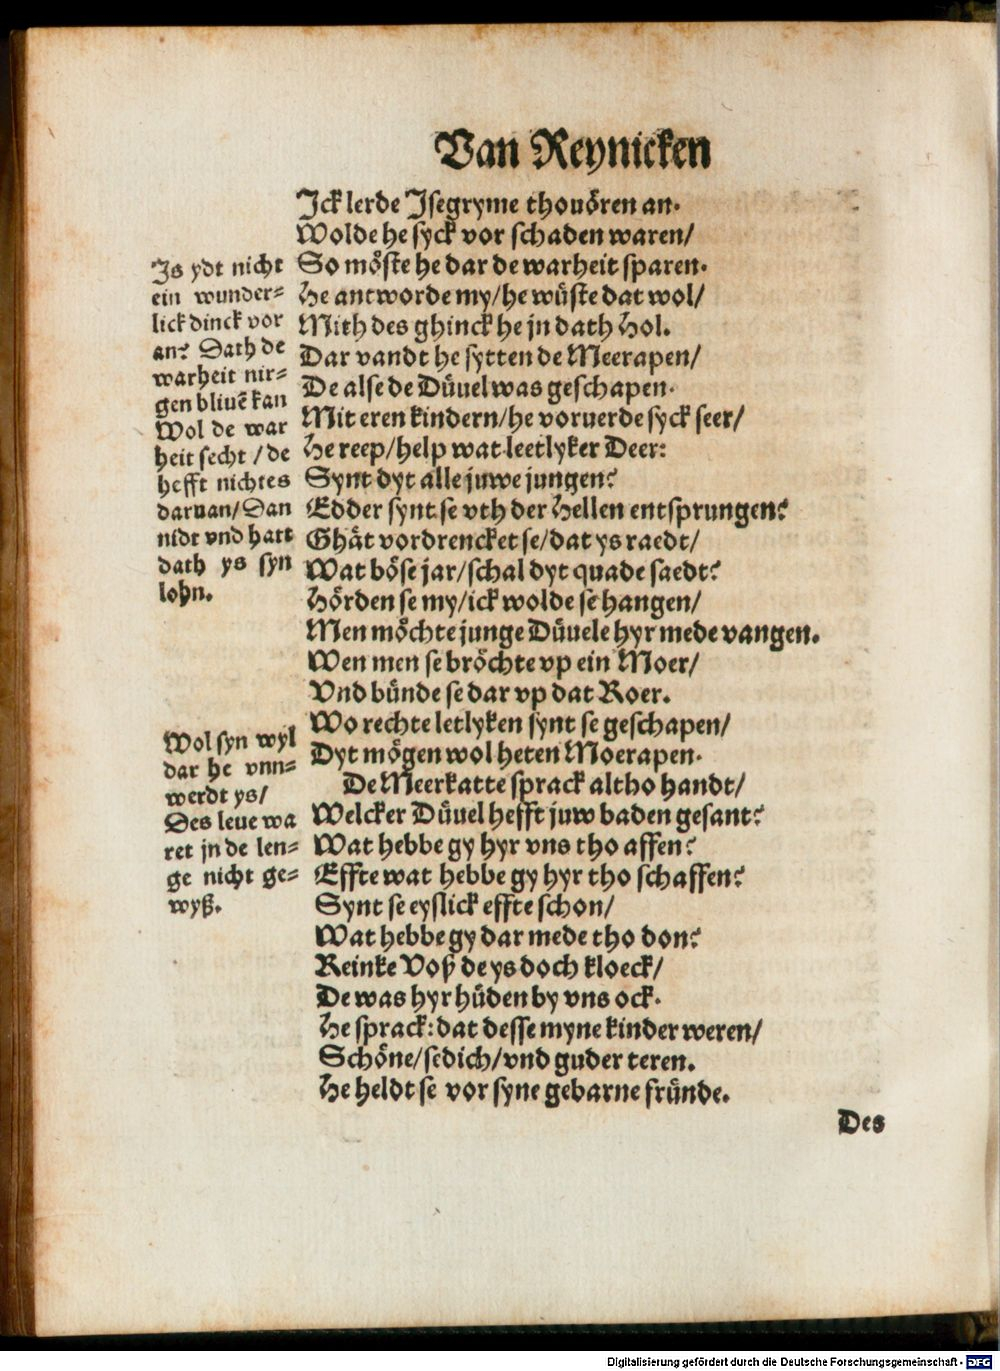 Van Reynicken
Jck lerde Jsegryme thouören an.
Wolde he syck vor schaden waren/
So möste he dar de warheit sparen.
He antworde my/he wüste dat wol/
Mith des ghinck he jn dath Hol.
Dar vandt he sytten de Meerapen/
De alse de Düuel was geschapen.
Mit eren kindern/he voruerde syck seer/
He reep/help wat leetlyker Deer:
Synt dyt alle juwe jungen?
Edder synt se vth der Hellen entsprungen?
Ghät vordrencket se/dat ys raedt/
Wat böse jar/schal dyt quade saedt?
Hörden se my/ick wolde se hangen/
Men möchte junge Düuele hyr mede vangen.
Wen men se bröchte vp ein Moer/
Vnd bünde se dar vp dat Roer.
Wo rechte letlyken synt se geschapen/
Dyt mögen wol heten Moerapen.
De Meerkatte sprack altho handt/
Welcker Düuel hefft juw baden gesant?
Wat hebbe gy hyr vns tho affen?
Effte wat hebbe gy hyr tho schaffen?
Synt se eyslick effte schon/
Wat hebbe gy dar mede tho don?
Reinke Voß de ys doch kloeck/
De was hyr hüden by vns ock.
He sprack: dat desse myne kinder weren/
Schöne/sedich/vnd guder teren.
He heldt se vor syne gebarne fründe.
Des
Js ydt nicht
ein wunder-
lick dinck vor
an? Dath de
warheit nir-
gen bliuē kan
Wol de war
heit secht /de
hefft nichtes
daruan/Dan
nidt vnd hatt
dath ys syn
lohn.
Wol syn wyl
dar he vnn-
werdt ys/
Des leue wa
ret jn de len-
ge nicht ge-
wyß.
Digitalisierung gefördert durch die Deutsche Forschungsgemeinschaft - DFG